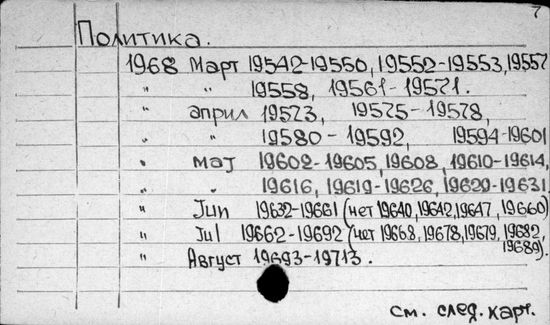 7
Политика.
1968 Март 19542-19550, 19552-19553, 19557
" " 19558, 19561-19571.
" април 19573, 19575-19578,
" " 19580-19592, 19594-19601
" мај 19602-19605, 19608, 19610-19614,
" " 19616, 19619-19626, 19629-19631.
" Jun 19632-19661 (нет 19640, 19642, 19647, 19660)
" Jul 19662-19692 (нет 19668, 19678, 19679, 19682, 19689).
" Август 19693-19713.
см. след. карт.